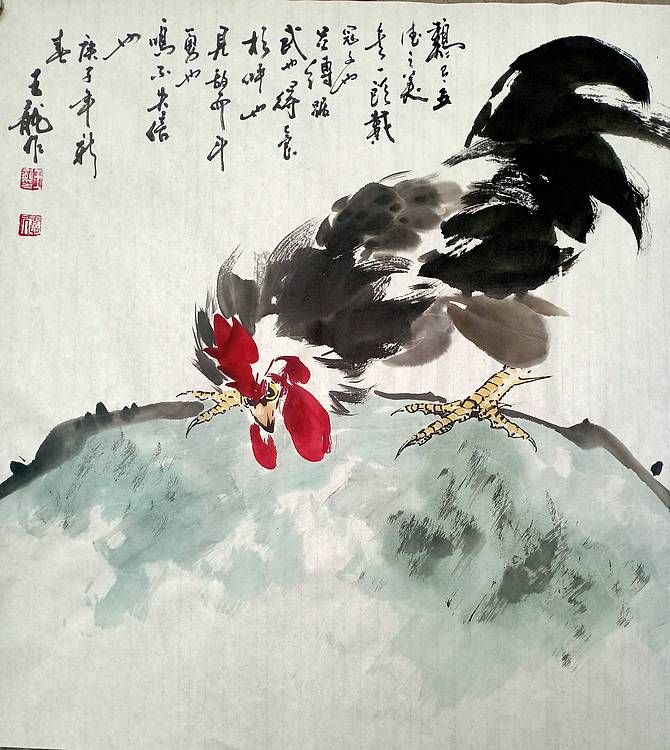 鷄五
德之美
者一頭戴
冠文也
足縛距
武也得食
相呼也
見敌而斗
勇也
鳴不失信
也
庚子年新
春
王龍作